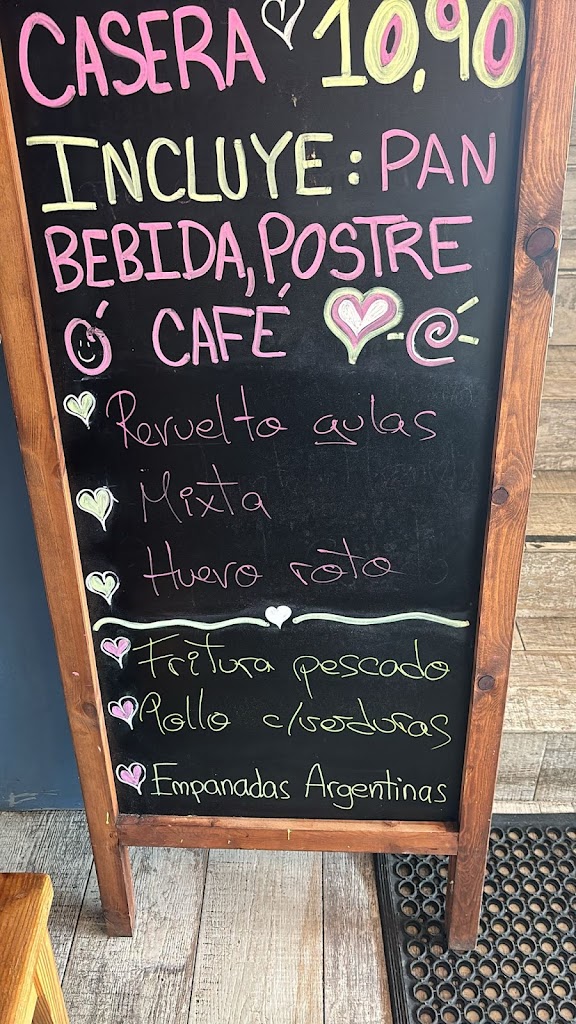 CASERA 10,90
INCLUYE: PAN
BEBIDA, POSTRE
Ó CAFÉ
Revuelto gulas
Mixta
Huevo roto
Fritura pescado
Pollo c/verduras
Empanadas Argentinas